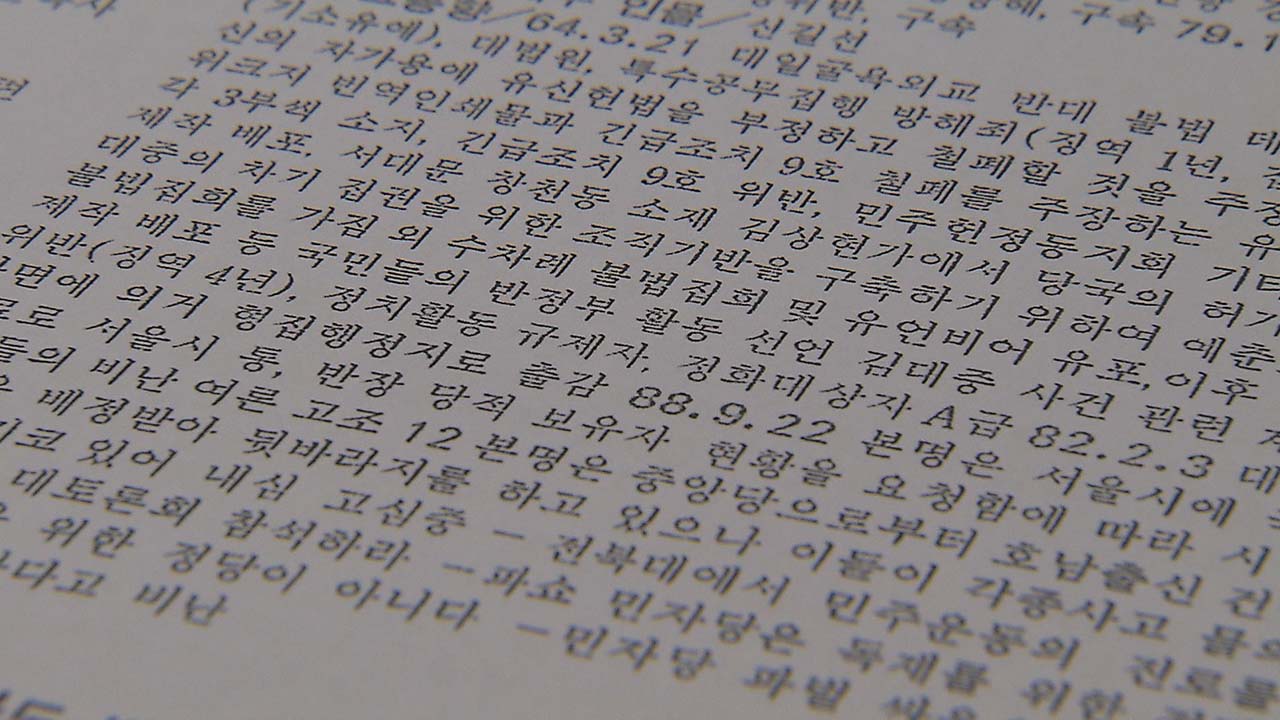 구속 79.1
위반, 구속
인물/신길선
/64.3.21 대일굴욕외교 반대 불법 데
(기소유예), 대법원, 특수공무집행 방해죄(징역 1년,
신의 자가용에 유신헌법을 부정하고 철폐할 것을 주장
위크지 번역인쇄물과 긴급조치 9호 철폐를 주장하는 유
각 3부씩 소지, 긴급조치 9호 위반, 민주헌정동지회 기타
제작 배포, 서대문 창천동 소재 김상현가에서 당국의 허가
대중의 차기 집권을 위한 조직기반을 구축하기 위하여 예춘
불법집회를 가짐 외 수차례 불법집회 및 유언비어 유포, 이후
제작 배포 등 국민들의 반정부 활동 선언 김대중 사건 관련
위반(징역 4년), 정치활동 규제자, 정화대상자 A급 82.2.3 대
사면에 의거 형집행정지로 출감 88.9.22 본명은 서울시에
로 서울시 통, 반장 당적 보유자 현황을 요청함에 따라 시
들의 비난 여론 고조 12 본명은 중앙당으로부터 호남출신 건
배정받아 뒷바라지를 하고 있으나 이들이 각종사고 물의
있어 내심 고심중 - 전북대에서 민주운동의 진로를
대토론회 참석하라 -파쇼 민자당은 독재를 위한
위한 정당이 아니다 -민자당 파벌 싸움
다고 비난